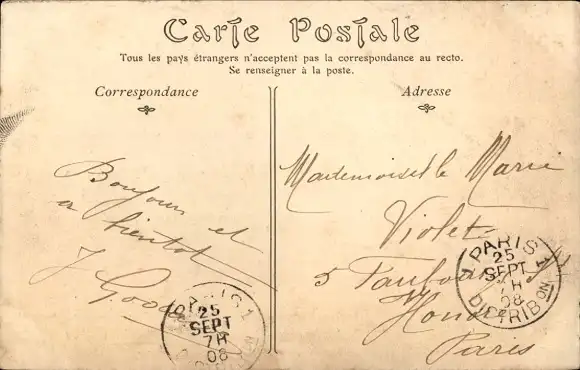 Carte Postale
Tous les pays étrangers n'acceptent pas la correspondance au recto.
Se renseigner à la poste.
Correspondance
Bonjour et
a bientot
J
Adresse
Mademoiselle Marie
Violet
5 Faubourg St
Honoré
Paris
PARIS 1
25
SEPT
7H
08
DISTRIBON
PARIS 1
25
SEPT
7H
08